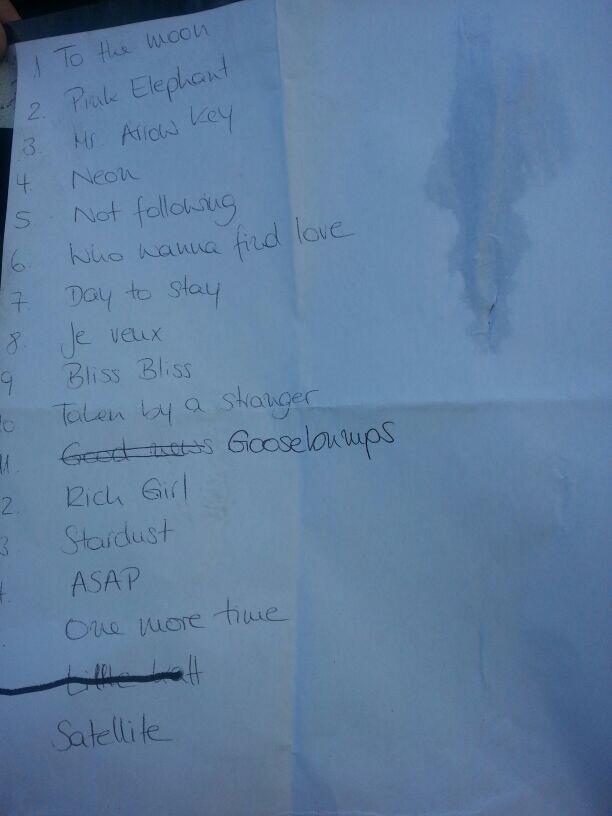 1 To the moon
2. Pink Elephant
3. Mr. Arrow Key
4 Neon
5 Not following
6. Who wanna find love
7. Day to stay
8. Je veux
9 Bliss Bliss
0 Taken by a stranger
11. Good news Goosebumps
2. Rich Girl
3 Stardust
. ASAP
One more time
Satellite